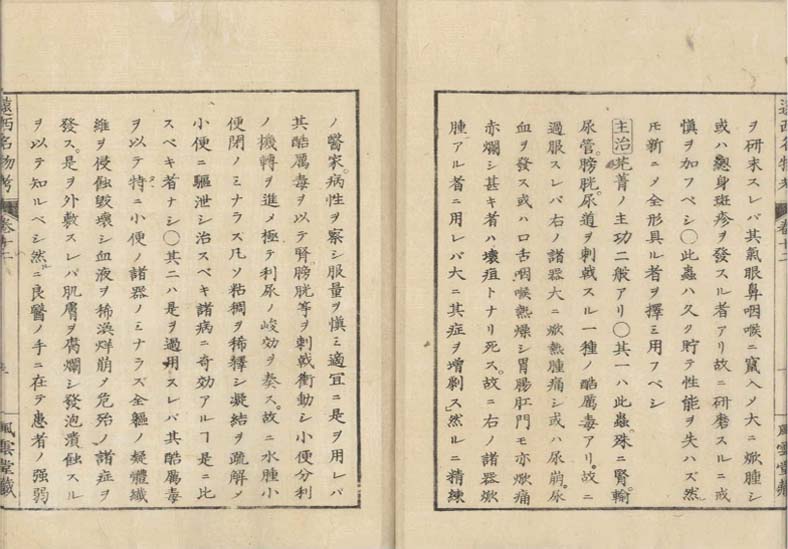 ヲ研末スレバ其氣眼鼻咽喉ニ竄入メ大ニ焮腫シ
或ハ總身斑疹ヲ發スル者アリ故ニ研磨スルニ戒
慎ヲ加フベシ〇此蟲ハ久ク貯テ性能ヲ失ハズ然
𪜈新ニメ全形具ル者ヲ擇ミ用フベシ
主治 芫菁ノ主功二般アリ〇其一ハ此蟲殊ニ腎輸
尿管膀胱尿道ヲ刺戟スル一種ノ酷厲毒アリ故ニ
過服スレバ右ノ諸器大ニ焮熱腫痛シ或ハ尿崩尿
血ヲ發ス或ハ口舌咽喉熱燥シ胃腸肛門モ亦焮痛
赤爛シ甚キ者ハ壞疽トナリ死ス故ニ右ノ諸器焮
腫アル者ニ用レバ大ニ其症ヲ増劇ス然ルニ精練
遠西名物考 卷十二 風雲堂藏
ノ醫家病性ヲ察シ服量ヲ慎ミ適宜ニ是ヲ用レバ
其酷厲毒ヲ以テ腎膀胱等ヲ刺戟衝動シ小便分利
ノ機轉ヲ進メ極テ利尿ノ峻効ヲ奏ス故ニ水腫小
便閉ノミナラズ凡ソ粘稠ヲ稀釋シ凝結ヲ疏解メ
小便ニ驅泄シ治スベキ諸病ニ奇効アルヿ是ニ比
スベキ者ナシ〇其二ハ是ヲ過用スレバ其酷厲毒
ヲ以テ特ニ小便ノ諸器ノミナラズ全軀ノ凝體纖
維ヲ侵蝕毀壞シ血液ヲ稀渙烊崩メ危殆ノ諸症ヲ
發ス是ヲ外敷スレバ肌膚ヲ腐爛シ發泡潰蝕スル
ヲ以テ知ルベシ然ニ良醫ノ手ニ在テ患者ノ强弱
遠西名物考 卷十二 風雲堂藏